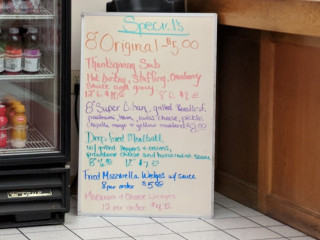 Specials
8" Original $5.00
Thanksgiving Sub
Hot turkey, Stuffing, Cranberry
sauce and gravy
8" Super Cuban, grilled
ham, swiss cheese, pickle,
mayo + yellow mustard
Deep Fried Meatball
w/ grilled peppers + onions,
provolone cheese and homemade sauce
Fried Mozzarella Wedges w/ sauce
8 per order $5.00
Macaroni + Cheese Wedges
12 per order